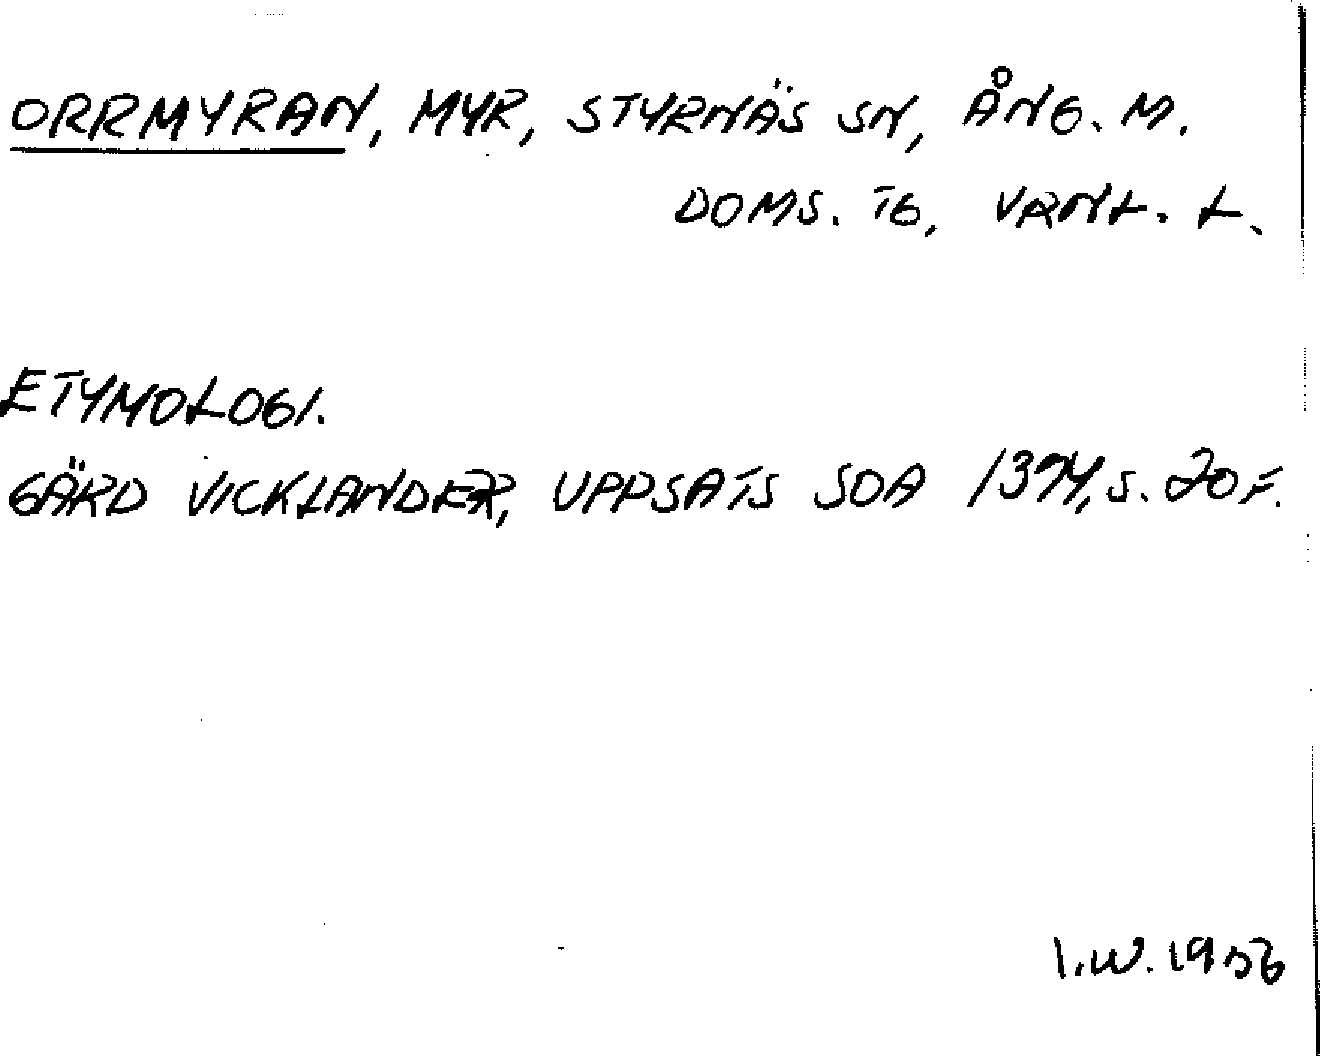 ORRMYRAN, MYR, STYRNÄS SN, ÅNG. M.
DOMS. TG, VRNL. L.
ETYMOLOGI.
GÄRD VICKLANDER, UPPSATS SOA 1394, S. 20 F.
I.W. 1956